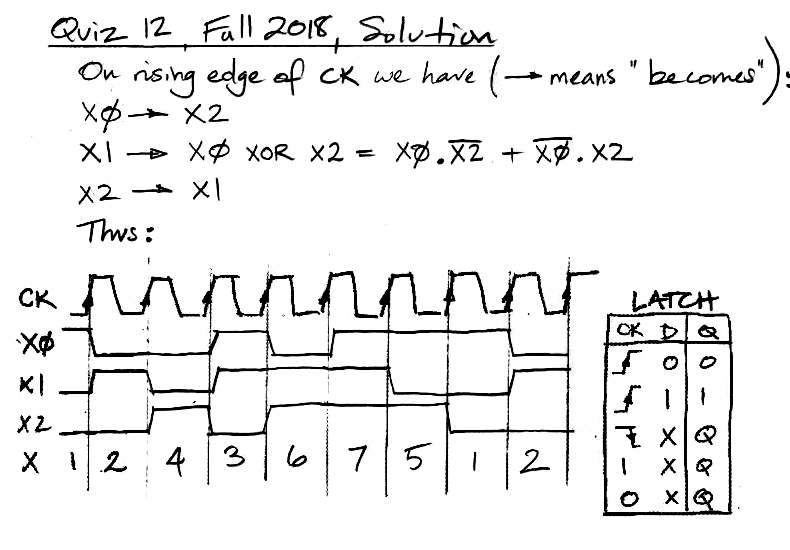 Quiz 12, Fall 2018, Solution
On rising edge of CK we have (→ means "becomes"):
XØ → X2
X1 → XØ XOR X2 = XØ.X̅2̅ + X̅Ø̅.X2
X2 → X1
Thus:
CK
XØ
X1
X2
X 1 2 4 3 6 7 5 1 2
LATCH
CK D Q
↑ 0 0
↑ 1 1
↓ X Q
1 X Q
0 X Q